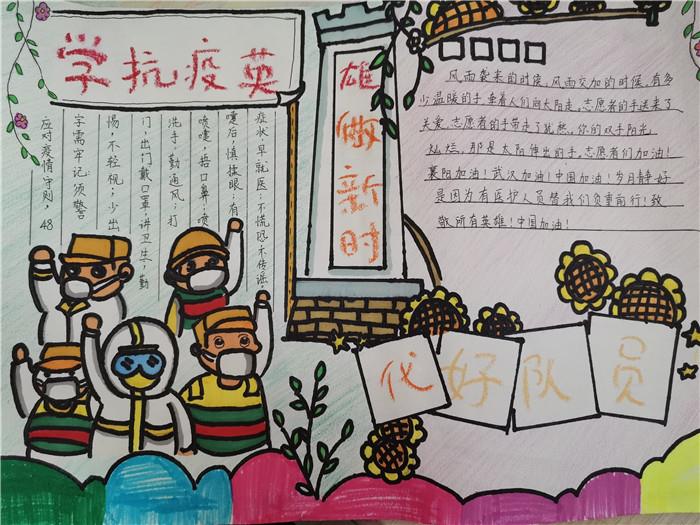 学抗疫英
雄做新时
代好队员
应对疫情守则,48
字需牢记:须警
惕,不轻视;少出
门,出门戴口罩;讲卫生,勤
洗手;勤通风;打
喷嚏,捂口鼻;喷
嚏后,慎揉眼;有
症状早就医;不慌恐不传谣.
风雨袭来的时候,风雨交加的时候,有多
少温暖的手,牵着人们向太阳走,志愿者的手送来了
关爱,志愿者的手带走了忧愁,你的双手阳光
灿烂,那是太阳伸出的手,志愿者们加油!
襄阳加油!武汉加油!中国加油!岁月静好
是因为有医护人员替我们负重前行!致
敬所有英雄!中国加油!